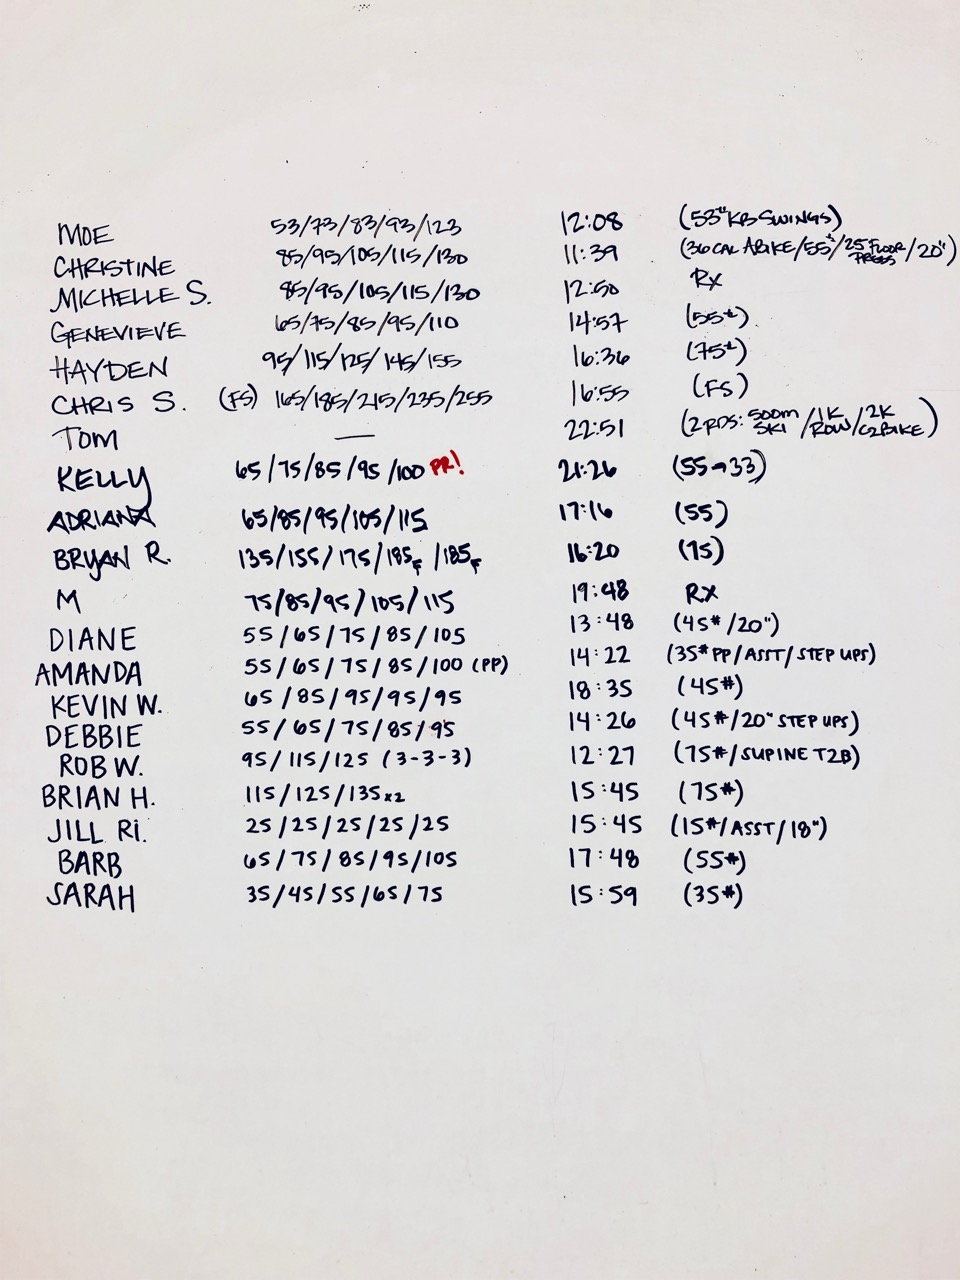 MOE 53/73/83/93/123 12:08 (53# KB SWINGS)
CHRISTINE 85/95/105/115/130 11:39 (36 CAL ABIKE/55#/25 FLOOR PRESS/20")
MICHELLE S. 85/95/105/115/130 12:50 Rx
GENEVIEVE 65/75/85/95/110 14:57 (55#)
HAYDEN 95/115/125/145/155 16:36 (75#)
CHRIS S. (FS) 165/185/215/235/255 16:55 (FS)
TOM — 22:51 (2 RDS: 500m SKI/1K ROW/2K C2BIKE)
KELLY 65/75/85/95/100 PR! 21:26 (55→33)
ADRIANA 65/85/95/105/115 17:16 (55)
BRYAN R. 135/155/175/185F/185F 16:20 (75)
M 75/85/95/105/115 19:48 RX
DIANE 55/65/75/85/105 13:48 (45#/20")
AMANDA 55/65/75/85/100 (PP) 14:22 (35# PP/ASST/STEP UPS)
KEVIN W. 65/85/95/95/95 18:35 (45#)
DEBBIE 55/65/75/85/95 14:26 (45#/20" STEP UPS)
ROB W. 95/115/125 (3-3-3) 12:27 (75#/SUPINE T2B)
BRIAN H. 115/125/135x2 15:45 (75#)
JILL RI. 25/25/25/25/25 15:45 (15#/ASST/18")
BARB 65/75/85/95/105 17:48 (55#)
SARAH 35/45/55/65/75 15:59 (35#)